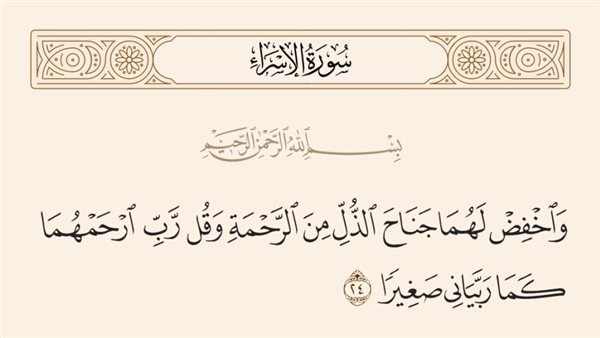 سُورَةُ الإِسْرَاءِ
بِسْمِ ٱللَّهِ ٱلرَّحْمَٰنِ ٱلرَّحِيمِ
وَٱخْفِضْ لَهُمَا جَنَاحَ ٱلذُّلِّ مِنَ ٱلرَّحْمَةِ وَقُل رَّبِّ ٱرْحَمْهُمَا
كَمَا رَبَّيَانِى صَغِيرًا ٢٤